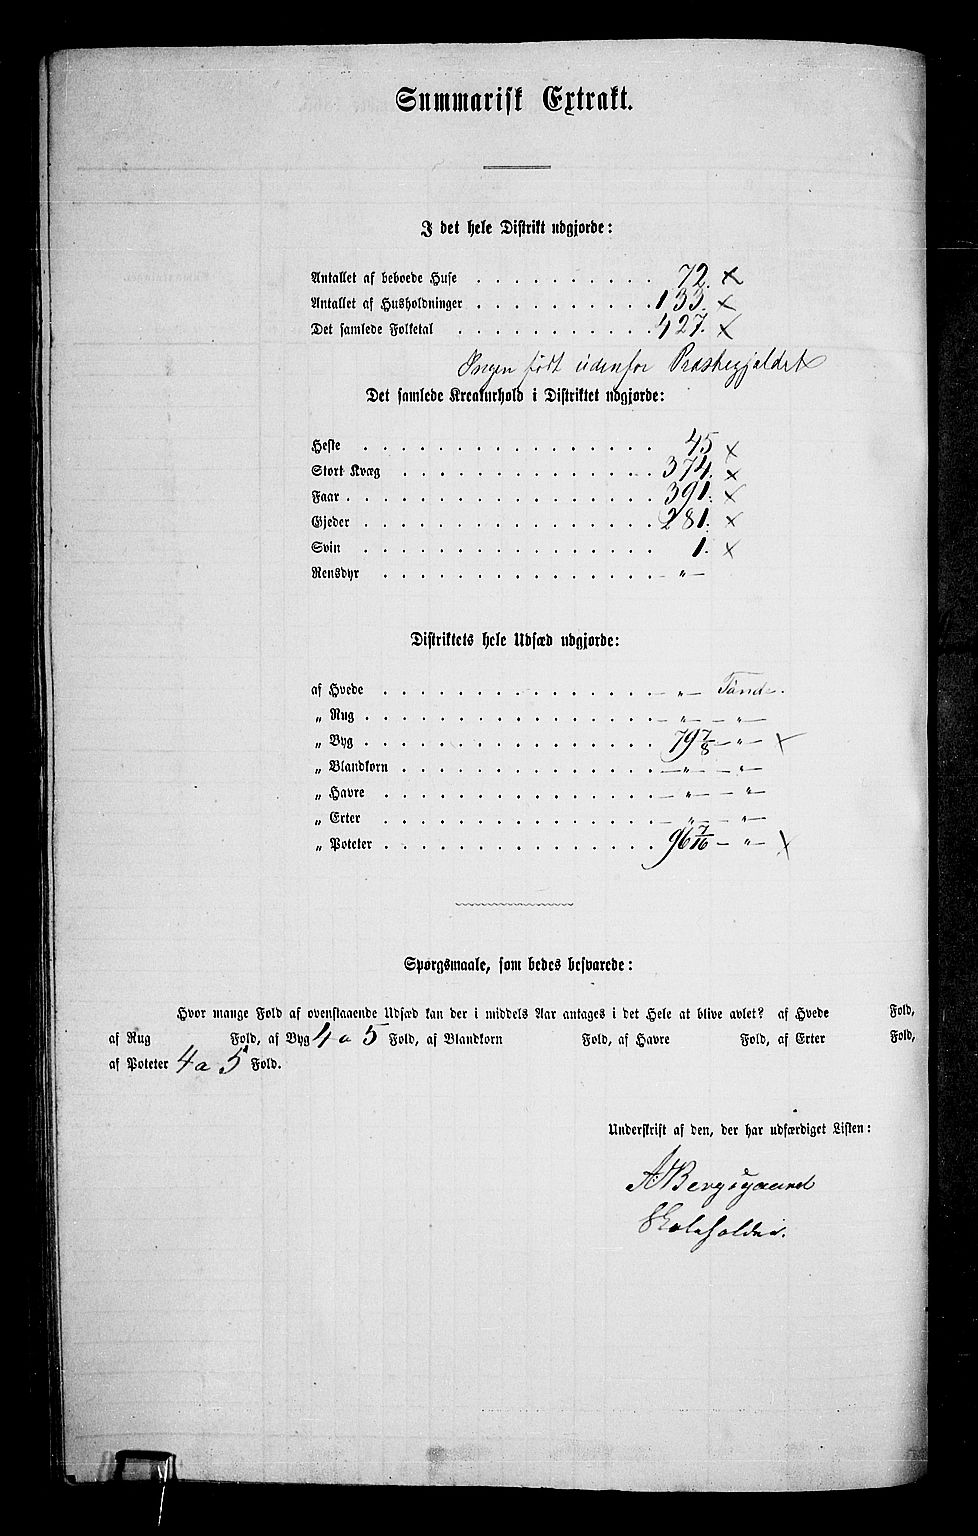 Summarisk Extrakt.
I det hele Distrikt udgjorde:
Antallet af beboede Huse . . . . . . . . . . 72. x
Antallet af Husholdninger . . . . . . . . . . 133. x
Det samlede Folketal . . . . . . . . . . . 427. x
Ingen født udenfor Præstegjeldet x
Det samlede Kreaturhold i Distriktet udgjorde:
Heste . . . . . . . . . . . . . . . . 45 x
Stort Kvæg . . . . . . . . . . . . . . 374. x
Faar . . . . . . . . . . . . . . . . . 391. x
Gjeder . . . . . . . . . . . . . . . . 281. x
Svin . . . . . . . . . . . . . . . . 1. x
Rensdyr . . . . . . . . . . . . . . . — „ —
Distriktets hele Udsæd udgjorde:
af Hvede . . . . . . . . . . . . . . . — „ — Tønde.
„ Rug . . . . . . . . . . . . . . . . — „ — „ —
„ Byg . . . . . . . . . . . . . . . . 79 7/8 — „ — x
„ Blandkorn . . . . . . . . . . . . . . — „ — „ —
„ Havre . . . . . . . . . . . . . . . — „ — „ —
„ Erter . . . . . . . . . . . . . . . — „ — „ —
„ Poteter . . . . . . . . . . . . . . . 96 7/16 — „ — x
Spørgsmaale, som bedes besvarede:
Hvor mange Fold af ovenstaaende Udsæd kan der i middels Aar antages i det Hele at blive avlet? af Hvede Fold,
af Rug Fold, af Byg 4 a 5 Fold, af Blandkorn Fold, af Havre Fold, af Erter Fold,
af Poteter 4 a 5 Fold.
Underskrift af den, der har udfærdiget Listen:
A Bergsgaard
Skoleholder.